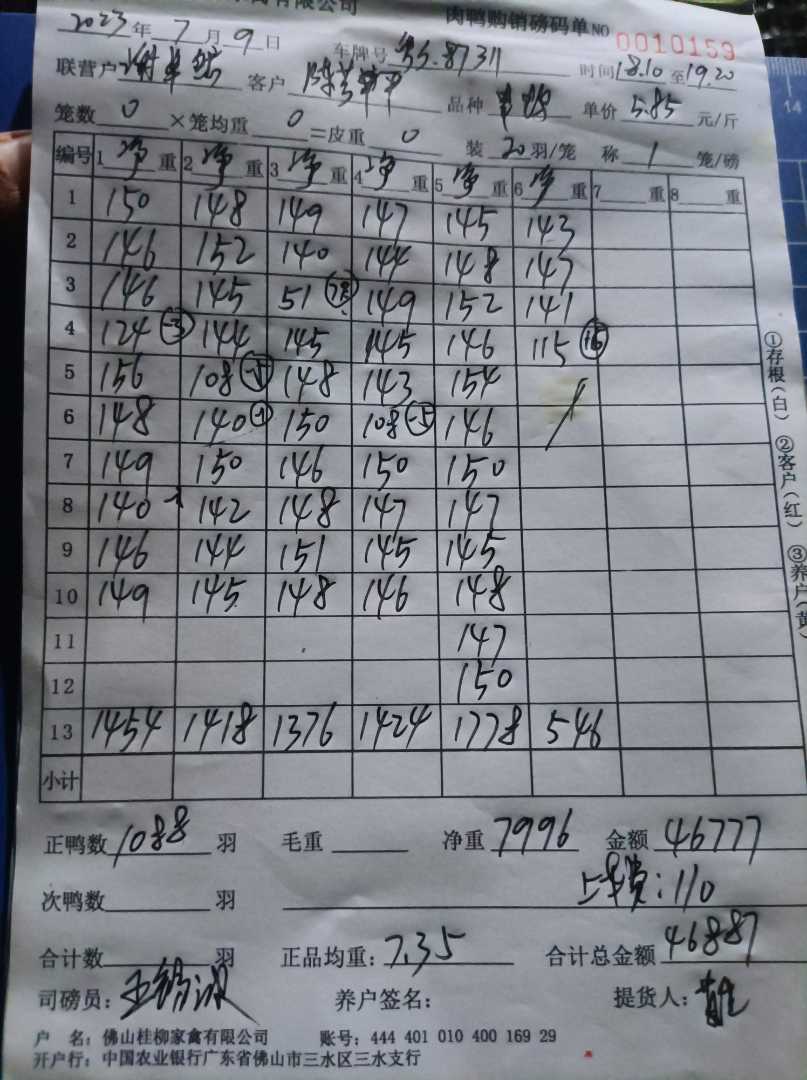 有限公司
肉鸭购销磅码单 NO 0010159
2023年7月9日 车牌号 87311 时间18.10至19.20
联营户 客户 陈 品种 单价 5.85 元/斤
笼数 0 ×笼均重 0 =皮重 0 装 20 羽/笼 称 1 笼/磅
编号 1 净 重 2 净 重 3 净 重 4 净 重 5 净 重 6 净 重 7 重 8 重
1 150 148 149 147 145 143
2 146 152 140 144 148 147
3 146 145 51 149 152 141
4 124 -3 144 145 145 146 115
5 156 108 -5 148 143 154
6 148 140 -1 150 108 -5 146
7 149 150 146 150 150
8 140 -1 142 148 147 147
9 146 144 151 145 145
10 149 145 148 146 148
11 147
12 150
13 1454 1418 1376 1424 1778 546
小计
正鸭数 1088 羽 毛重 净重 7996 金额 46777
次鸭数 羽 上车费:110
合计数 羽 正品均重: 7.35 合计总金额 46887
司磅员: 王 养户签名: 提货人:
户 名: 佛山桂柳家禽有限公司 账号: 444 401 010 400 169 29
开户行: 中国农业银行广东省佛山市三水区三水支行
①存根(白) ②客户(红) ③养户(黄